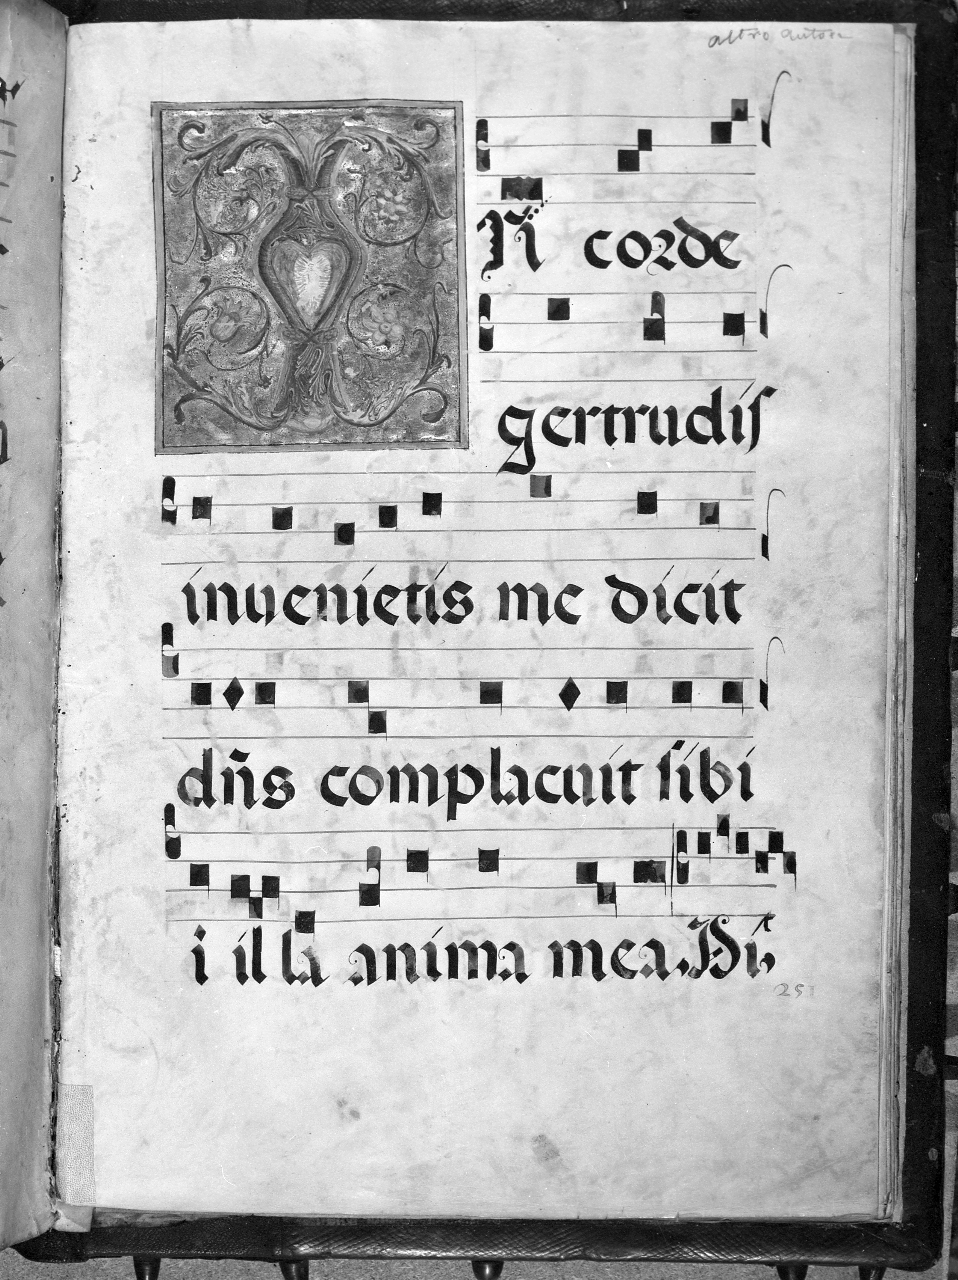 altro autore
IN corde
gertrudis
inuenietis me dicit
dñs complacuit sibi
i illa anima mea. Ps̄.
25